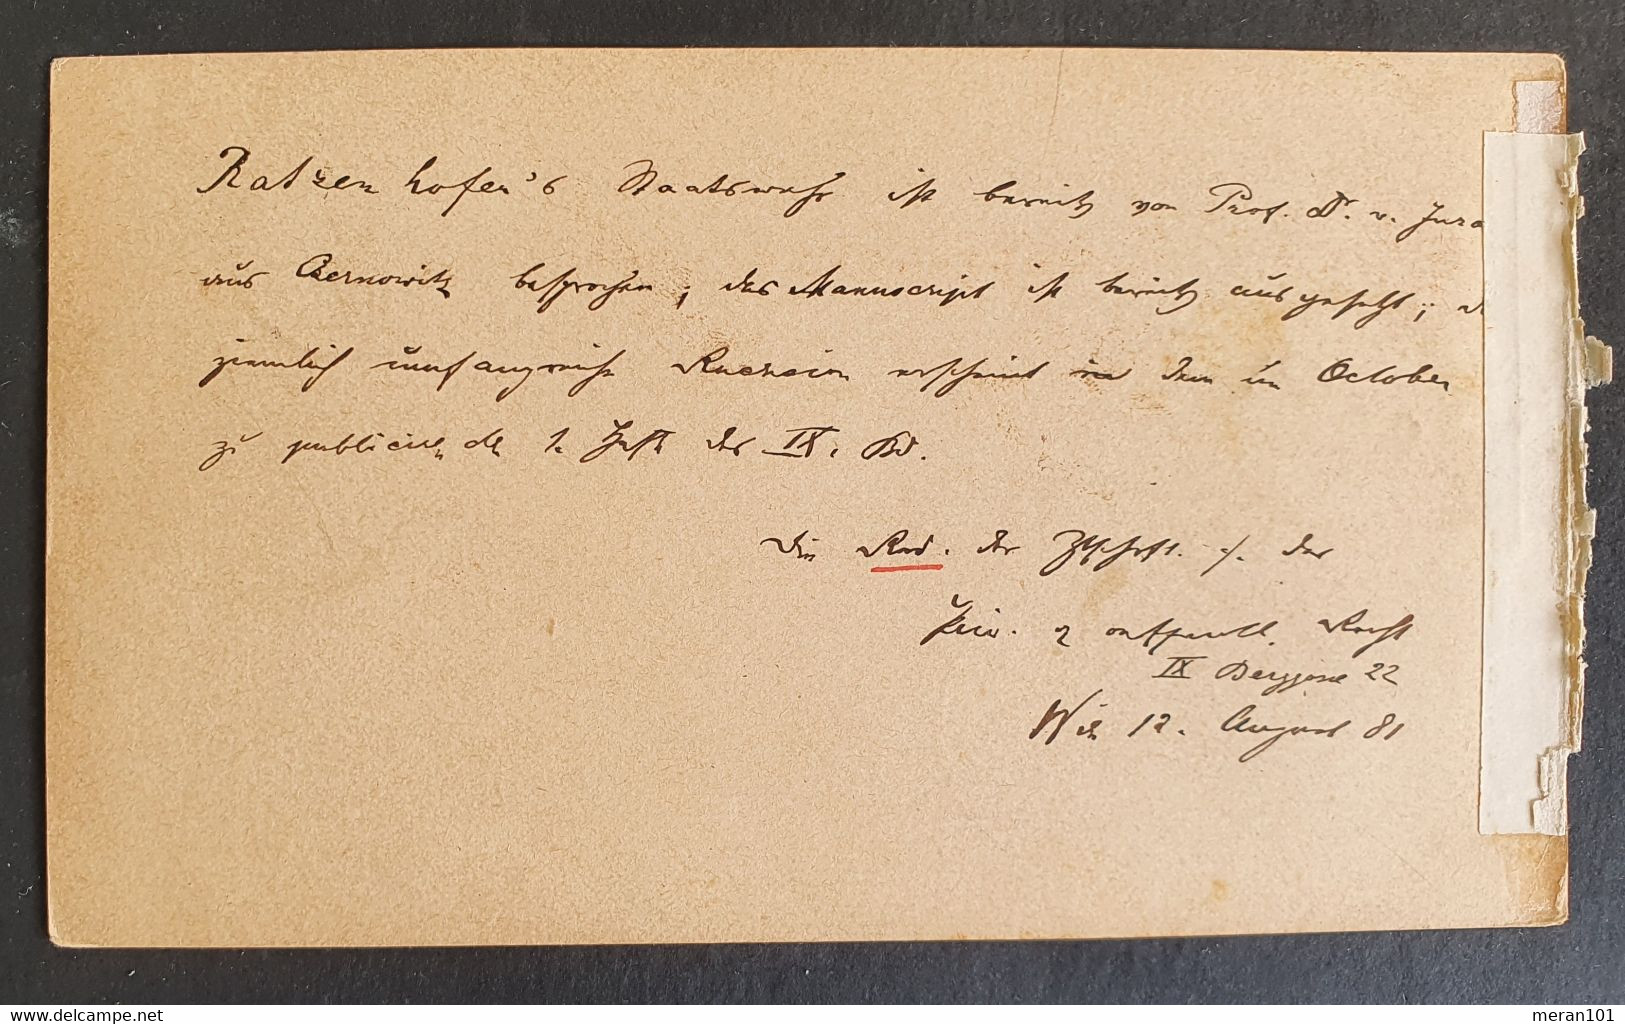 Ratzenhofer's Staatswehr ist bereits von Prof. Dr. v. Jura
aus Czernowitz besprochen; das Manuscript ist bereits ausgesetzt;
ziemlich umfangreiche Recension erscheint in dem im October
zu publicirenden 1. Heft des IX. Bd.
Die Red. der Ztschrft. f. das
Priv. u öffentl. Recht
IX Berggasse 22
Wien 12. August 81
www.delcampe.net
meran101